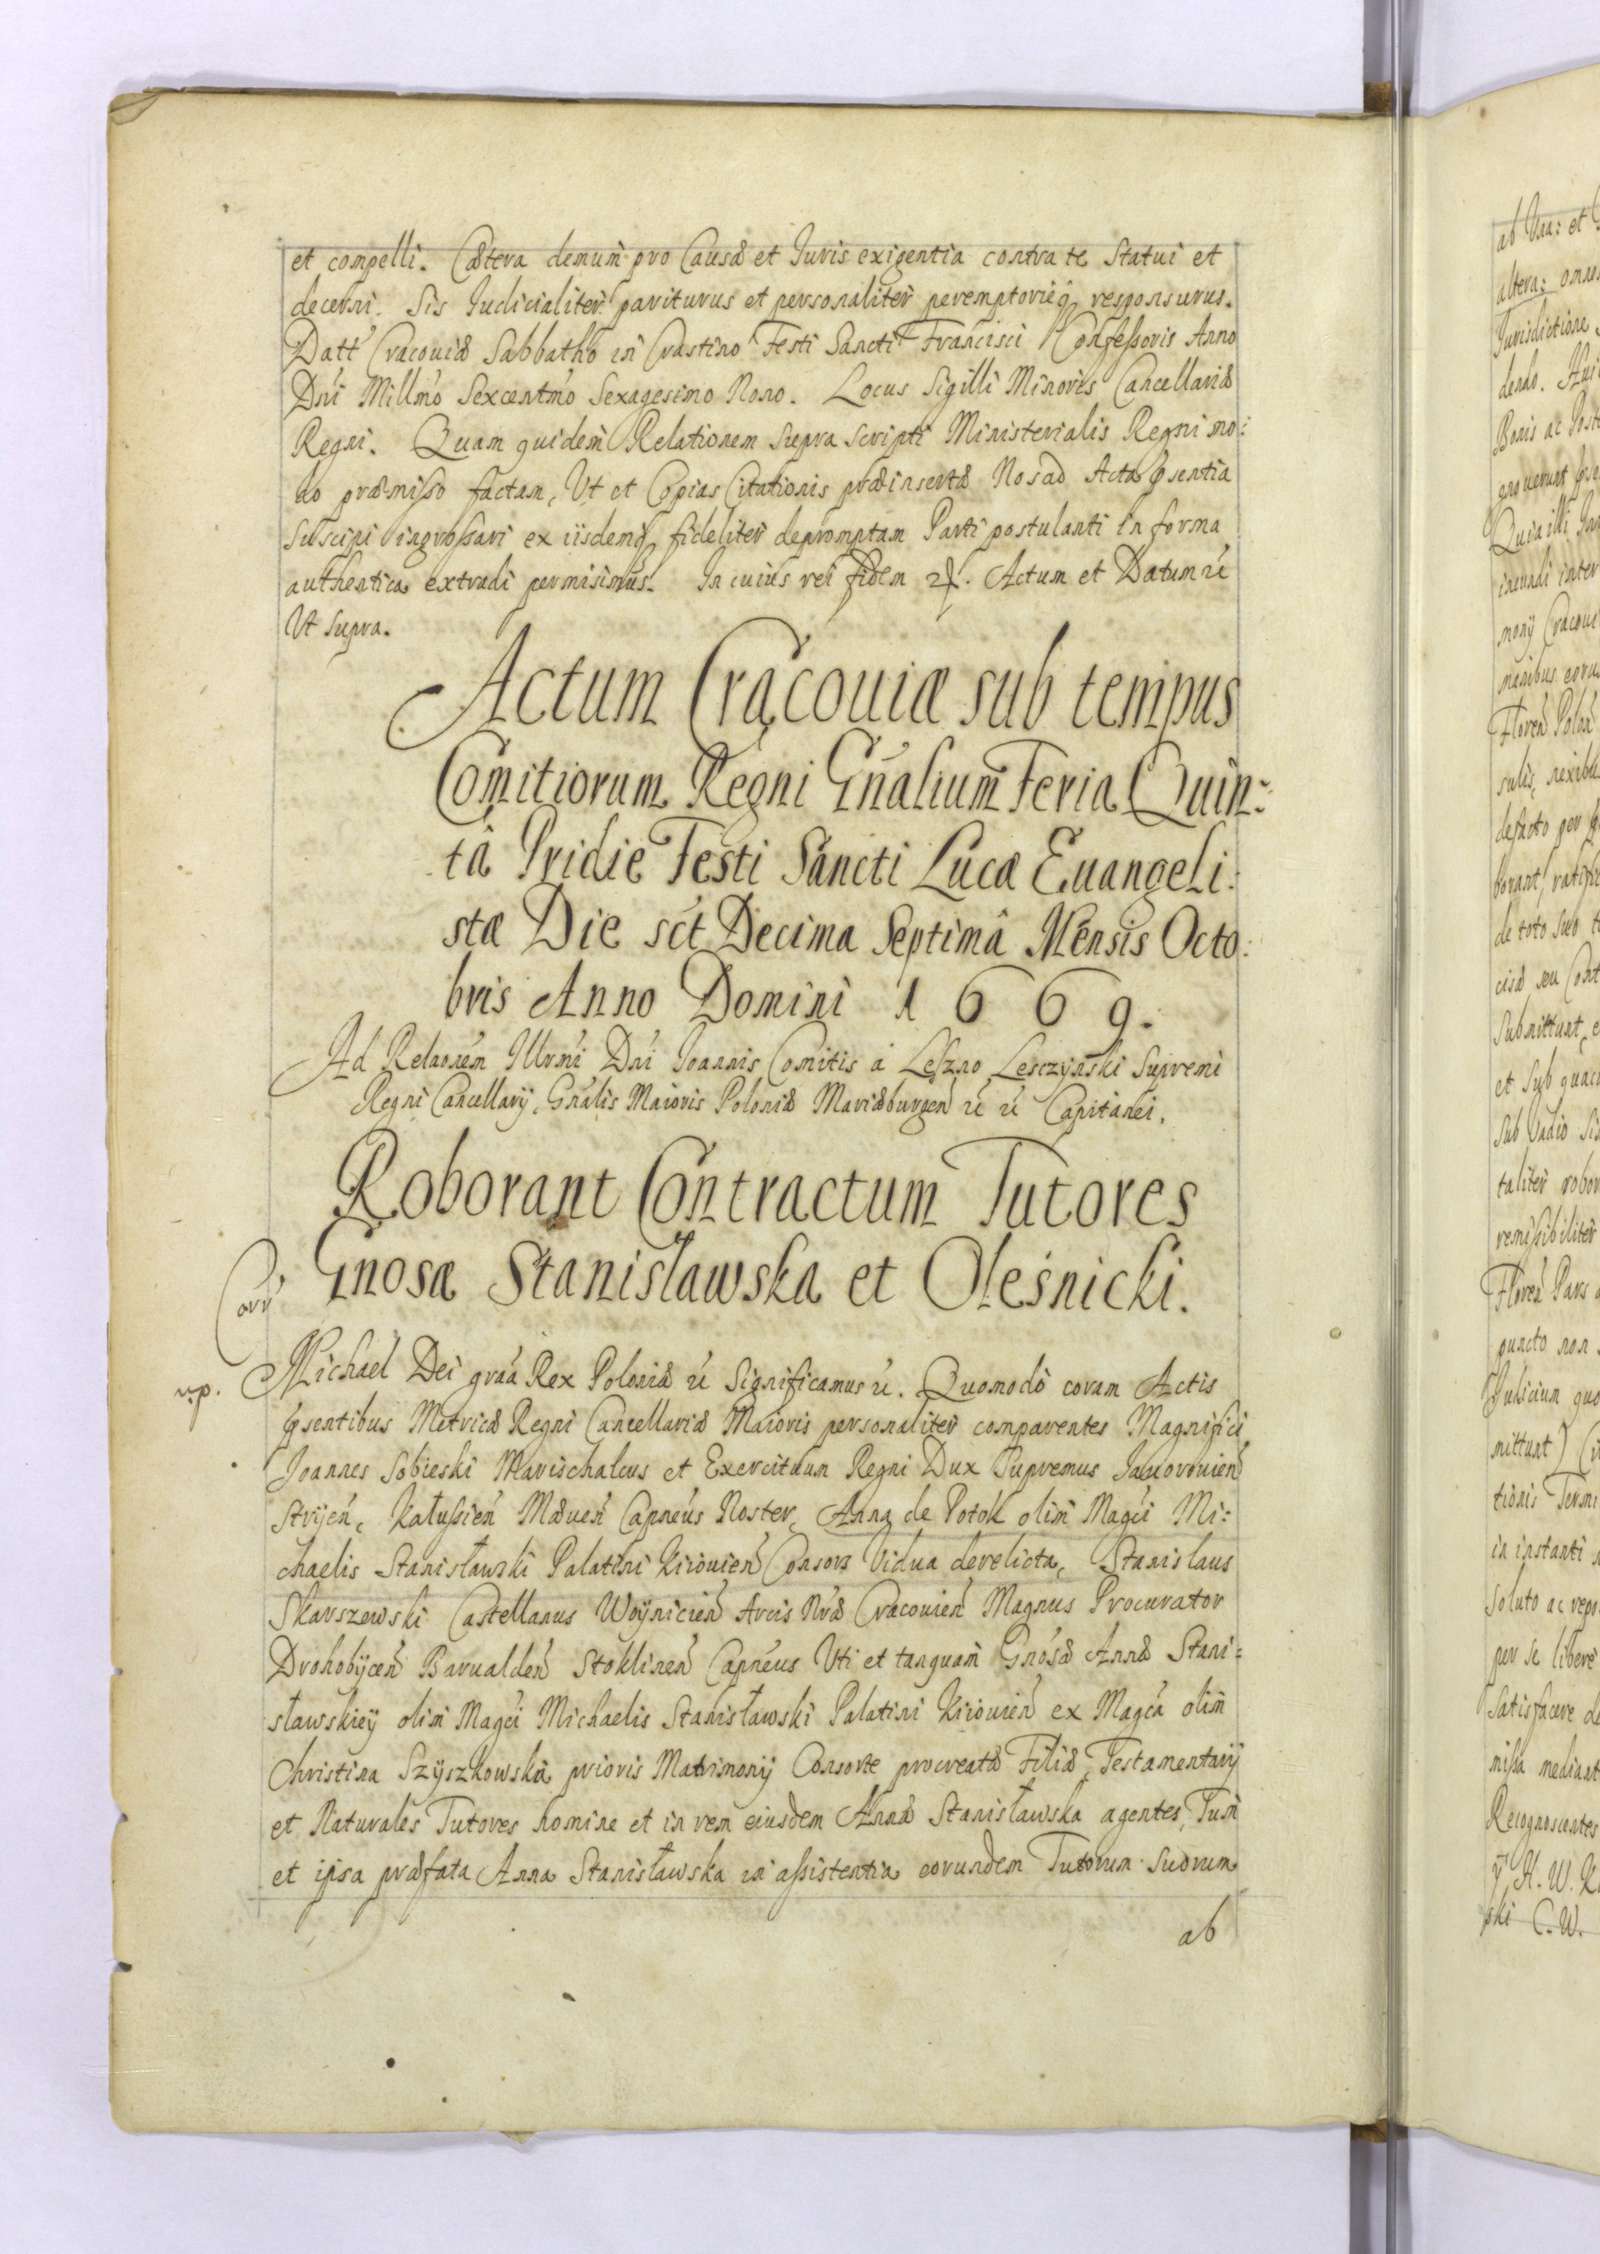 et compelli. Cætera demum pro Causæ et Juris exigentia contra te Statui et
decerni. Sis Judicialiter pariturus et personaliter peremptorieq responsurus.
Datt Cracouiæ Sabbatho in Crastino Festi Sancti Francisci Confessoris Anno
Dni Millmo Sexcentmo Sexagesimo Nono. Locus Sigilli Minoris Cancellariæ
Regni. Quam quidem Relationem Supra Scripti Ministerialis Regni mo:
do præmisso factam, Ut et Copias Citationis præinsertæ Nos ad Acta pſentia
Suscipi ingrossari ex iisdemq fideliter depromptam Parti postulanti in forma
authentica extradi permisimus. In cuius rei fidem . Actum et Datum ut
Ut Supra.
Actum Cracouiæ sub tempus
Comitiorum Regni Gñalium Feria Quin:
tâ Pridie Festi Sancti Lucæ Euangeli:
stæ Die sct Decima Septimâ Mensis Octo:
bris Anno Domini 1669.
Ad Relaonem Illrmi Dni Joannis Comitis à Leszno Lesczynski Supremi
Regni Cancellarij, Gñalis Maioris Poloniæ Mariæburgen Capitanei.
Roborant Contractum Tutores
Gnosæ Stanisławska et Oleśnicki.
Corr
Michael Dei graa Rex Poloniæ Significamus. Quomodo coram Actis
np.
pſentibus Metricæ Regni Cancellariæ Maioris personaliter comparentes Magnifici
Joannes Sobieski Marischalcus et Exercituum Regni Dux Supremus Jauorouien
Stryen, Kałussien Mæuen Capneus Noster, Anna de Potok olim Magci Mi:
chaelis Stanisławski Palatini Kiiouien Consors Vidua derelicta, Stanislaus
Skarszewski Castellanus Woynicien Arcis Nræ Cracouien Magnus Procurator
Drohobycen Barualden Stoklinen Capneus Uti et tanquam Gnosæ Annæ Stani:
sławskiey olim Magci Michaelis Stanisławski Palatini Kiiouien ex Magca olim
Christina Szyszkowska prioris Matrimonij Consorte procreatæ Filiæ, Testamentarij
et Naturales Tutores nomine et in rem eiusdem Annæ Stanisławska agentes, Tum
et ipsa præfata Anna Stanisławska in assistentia eorundem Tutorum Suorum
ab
ab Una: et
altera: omni
Jurisdictione
dendo.
Bonis ac
Quia illi
ineundi inter
manibus
Floren Polon
de toto Suo
Submittunt
et Sub
Sub Vadio
taliter robor
remissibiliter
Floren Pars
puncto non
Judicium quo
mittunt)
tionis Termi
in instanti
Soluto ac repo
per se libere
Satisfacere de
missa mediant
Recognoscentes
H. W. K
ski C. W.